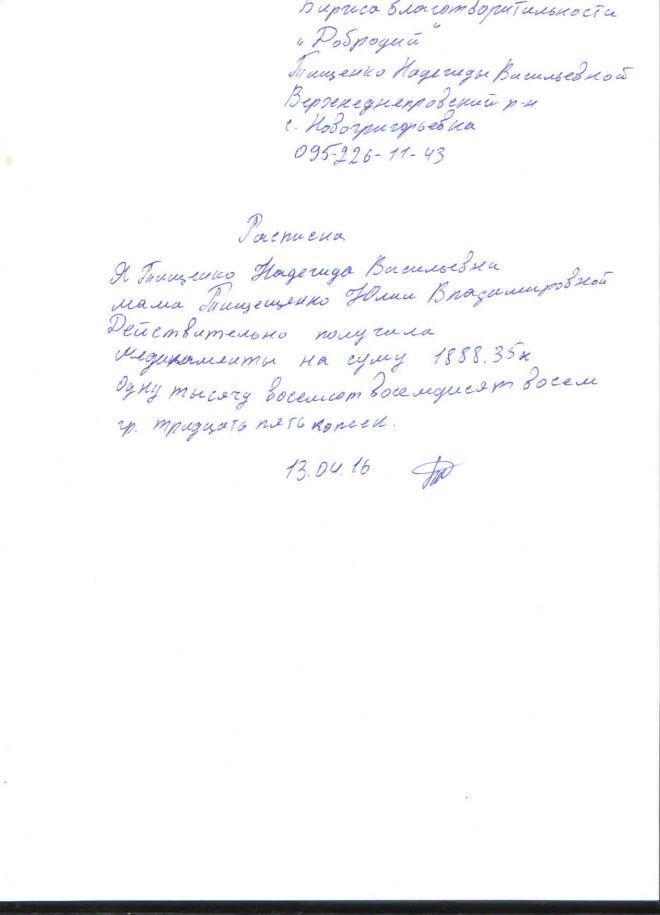 Биржа благотворительности
"Добродий"
Тищенко Надежды Васильевной
Верхнеднепровский р-н
с. Новогригорьевка
095-226-11-43
Расписка
Я Тищенко Надежида Васильевна
мама Тищещенко Юлии Владимировной
Действительно получила
медикаменты на суму 1888.35к
Одну тысячу восемсот восемдисят восем
гр. тридцать пять копеек.
13.04.16